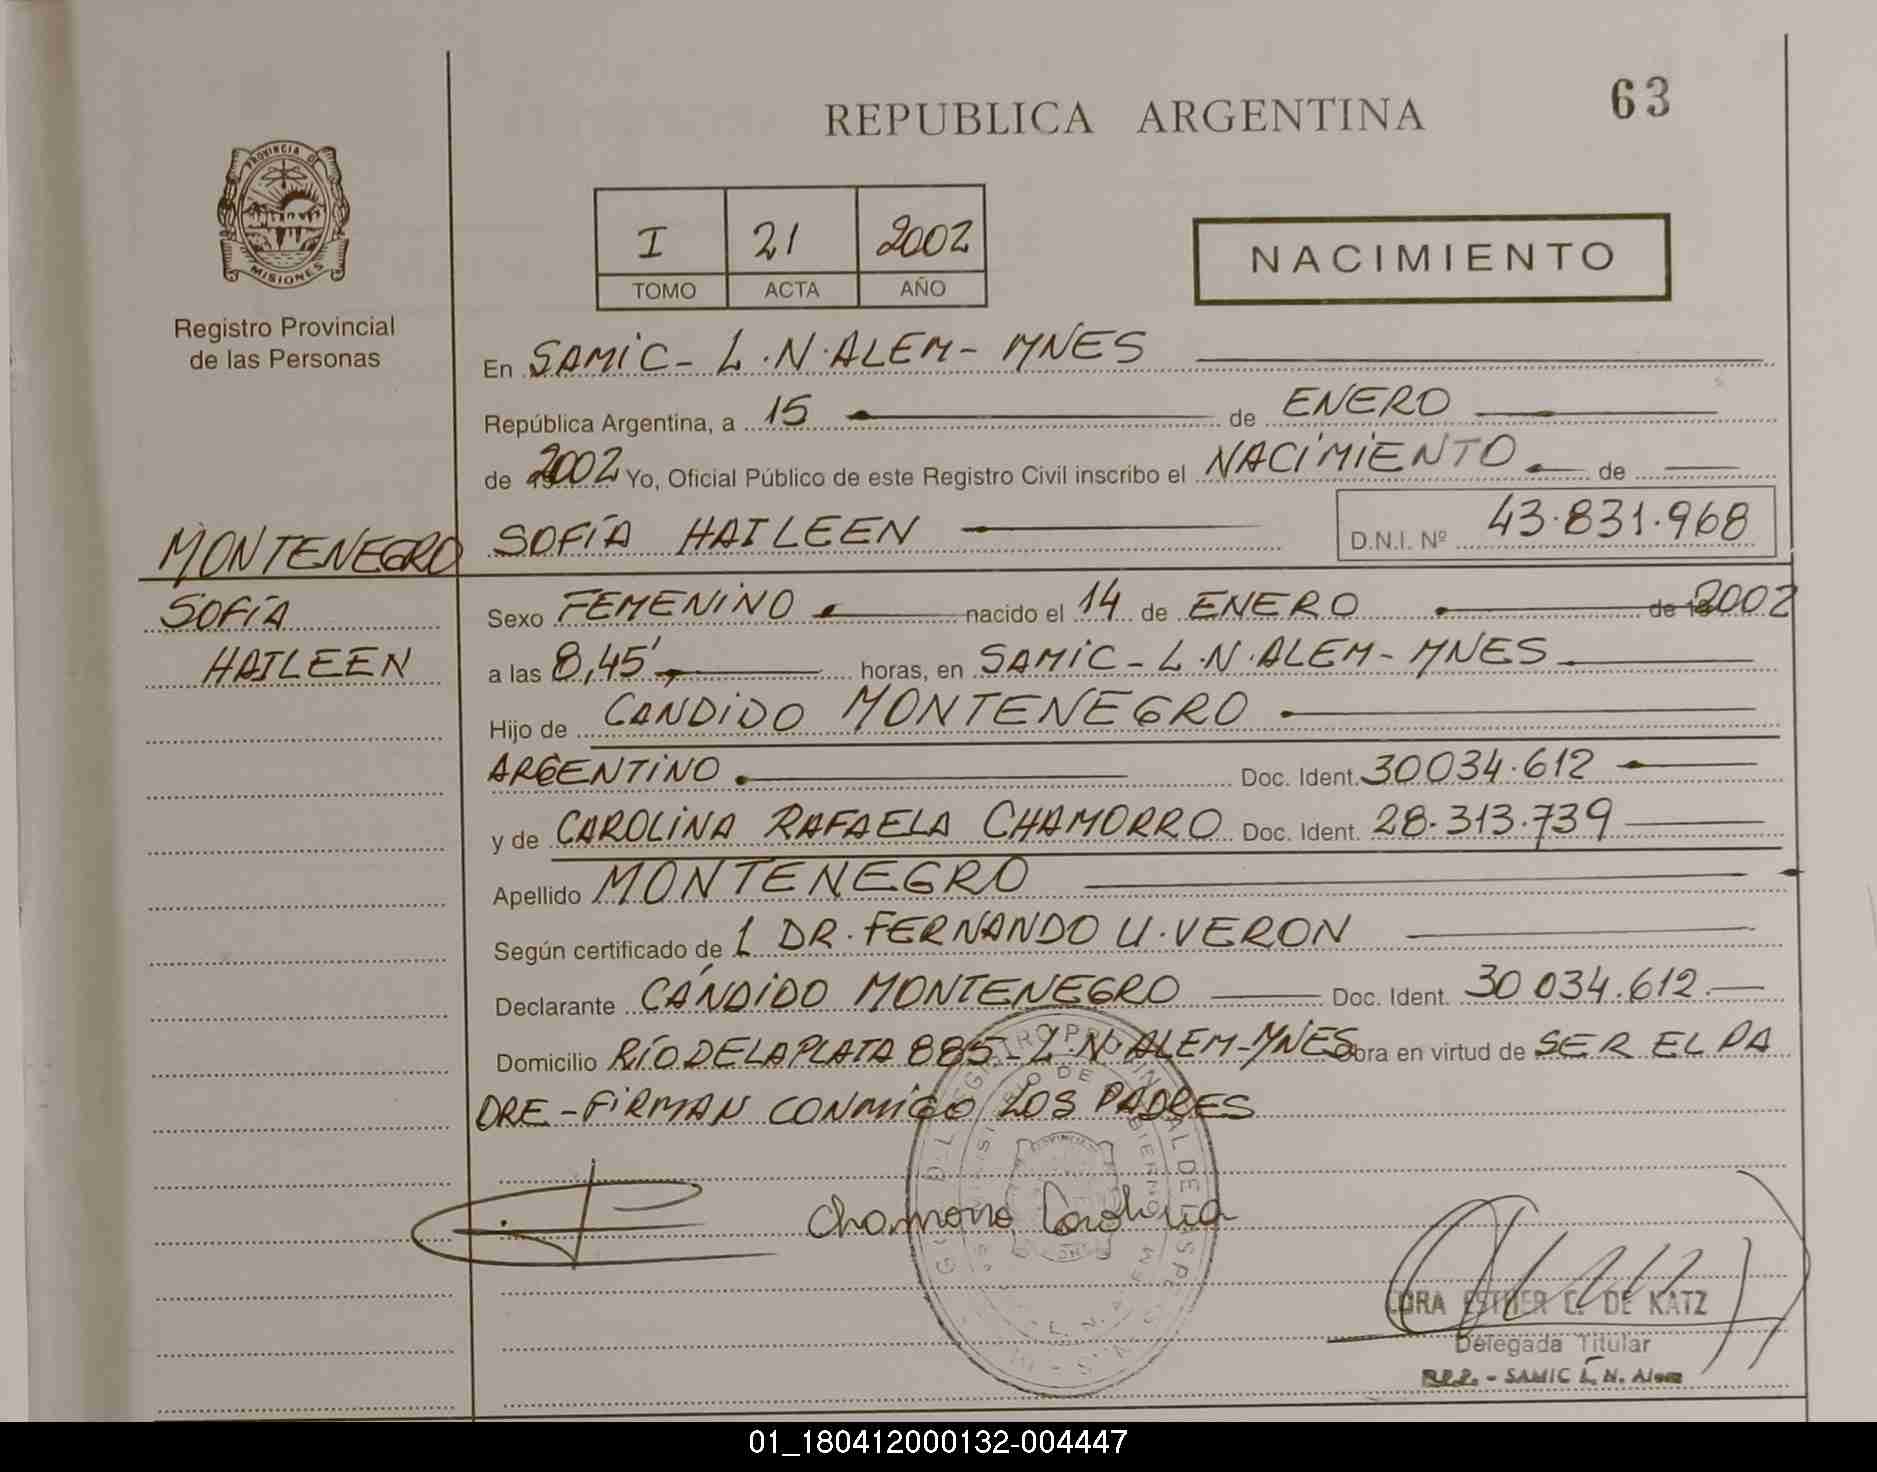 REPUBLICA ARGENTINA
63
PROVINCIA DE
MISIONES
Registro Provincial
de las Personas
I 21 2002
TOMO ACTA AÑO
NACIMIENTO
En SAMIC - L.N.ALEM - MNES
República Argentina, a 15 de ENERO
de 2002 Yo, Oficial Público de este Registro Civil inscribo el NACIMIENTO de
MONTENEGRO SOFÍA HAILEEN D.N.I. Nº 43.831.968
SOFÍA
HAILEEN
Sexo FEMENINO nacido el 14 de ENERO de 2002
a las 8,45' horas, en SAMIC - L.N.ALEM - MNES
Hijo de CANDIDO MONTENEGRO
ARGENTINO Doc. Ident. 30034.612
y de CAROLINA RAFAELA CHAMORRO Doc. Ident. 28.313.739
Apellido MONTENEGRO
Según certificado de L DR. FERNANDO U. VERON
Declarante CÁNDIDO MONTENEGRO Doc. Ident. 30 034.612
Domicilio RÍO DE LA PLATA 885 - L.N.ALEM - MNES obra en virtud de SER EL PA
DRE - FIRMAN CONMIGO LOS PADRES
Chamorro Carolina
CORA ESTHER C. DE KATZ
Delegada Titular
R.P.P. - SAMIC L. N. Alem
01_180412000132-004447